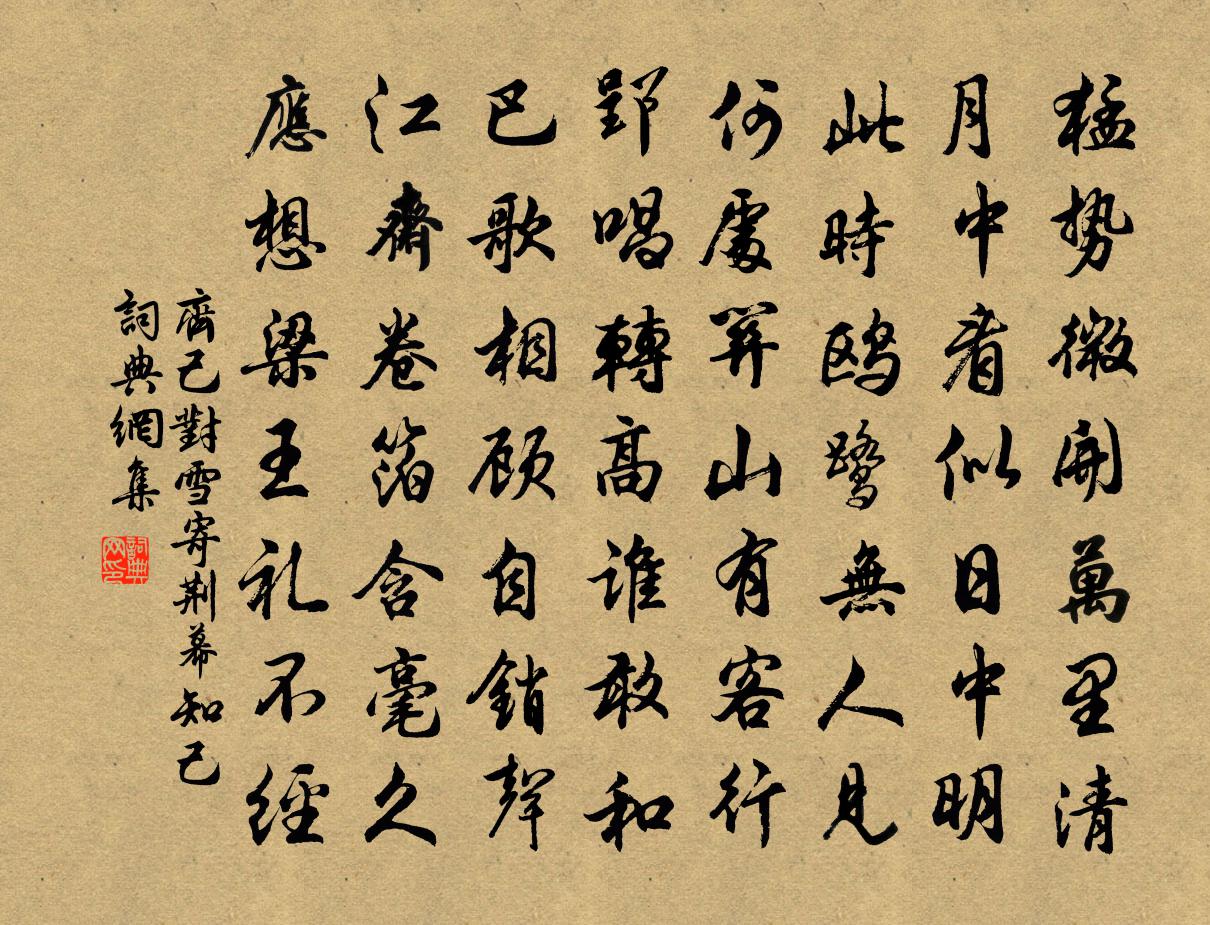 猛势微開萬里清
月中看似日中明
此時鷗鷺無人見
何處關山有客行
郢唱轉高誰敢和
巴歌相顾自銷聲
江齋卷箔含毫久
應想梁王礼不經
齊己對雪寄荆幕知己
詞典網集
詞典网印